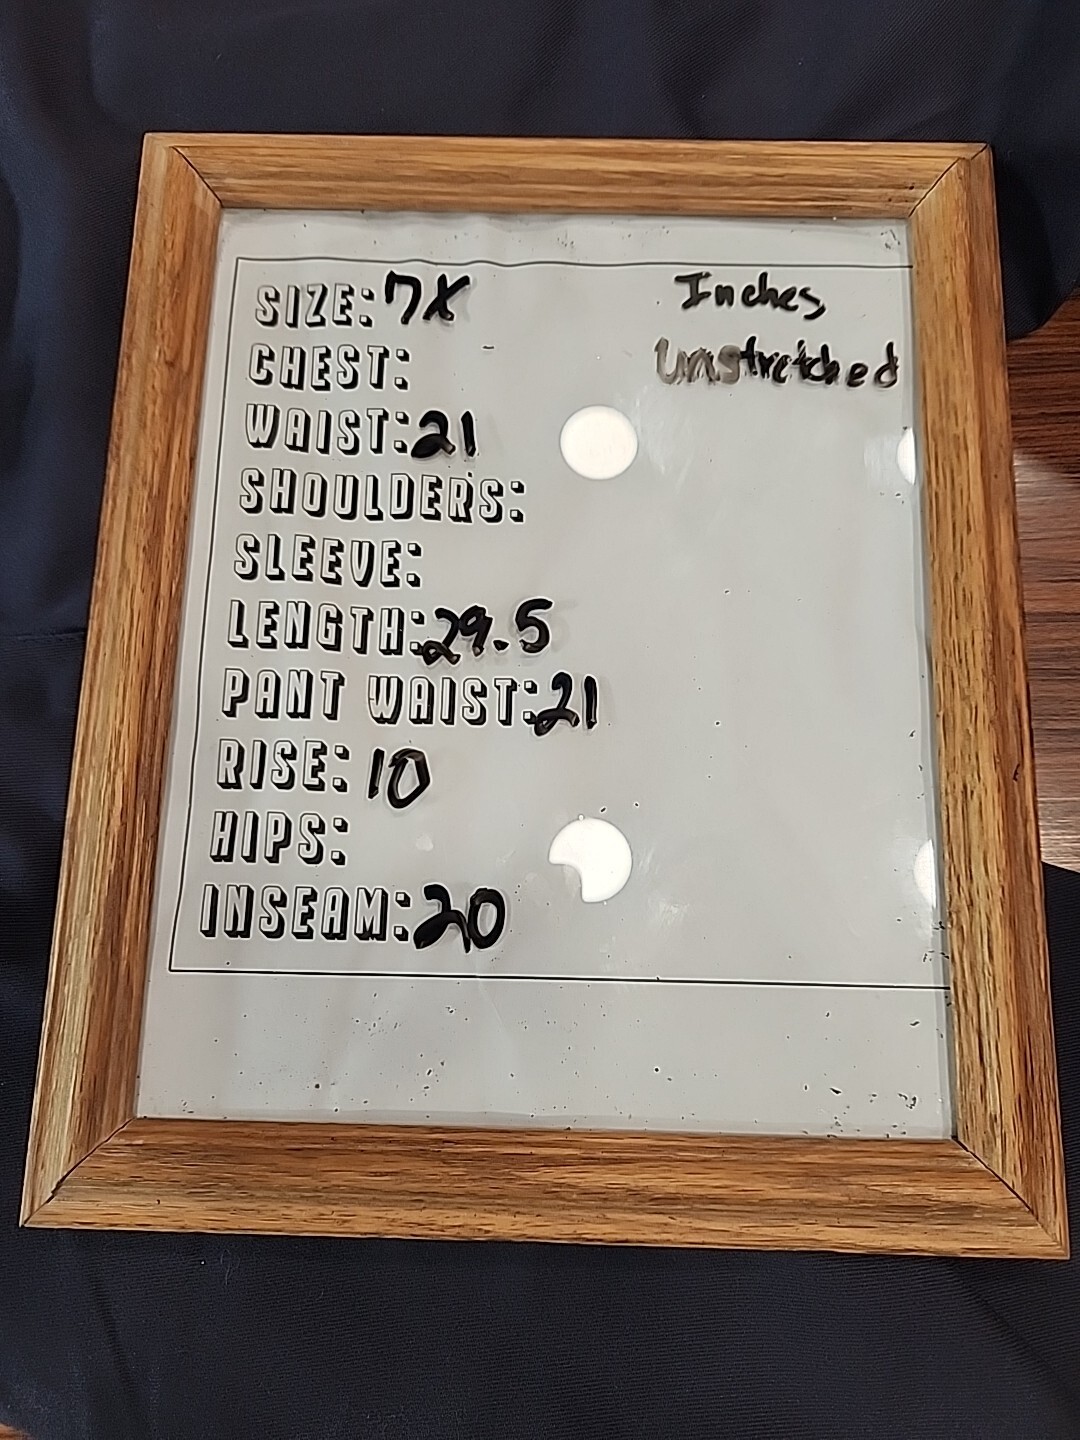 SIZE: 7X
Inches
Unstretched
CHEST:
WAIST: 21
SHOULDERS:
SLEEVE:
LENGTH: 29.5
PANT WAIST: 21
RISE: 10
HIPS:
INSEAM: 20